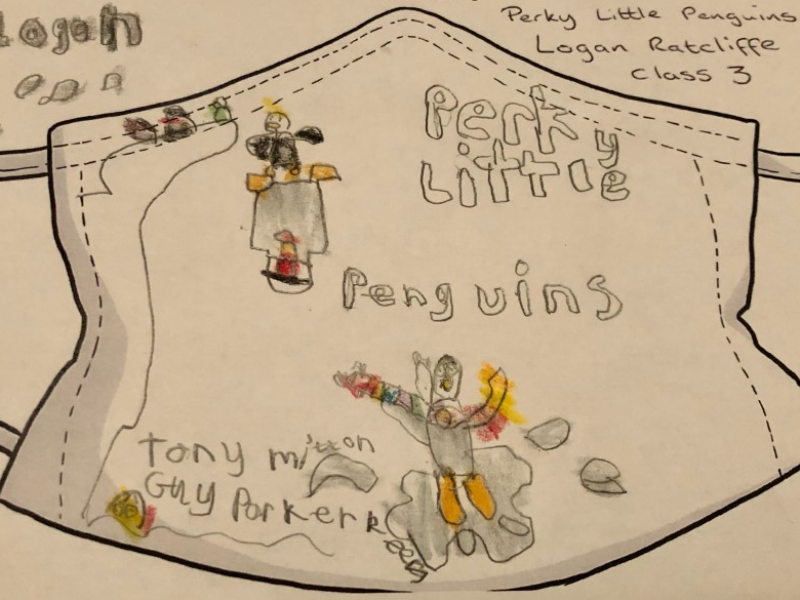 Logan
Perky Little Penguins
Logan Ratcliffe
Class 3
Perky
Little
Penguins
Tony mitton
Guy Parker Rees